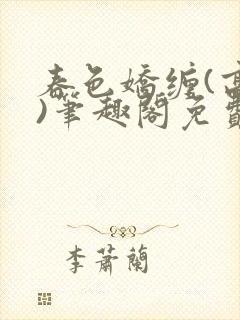 春色嬌纏(高
)筆趣閣免費
李蕭蘭